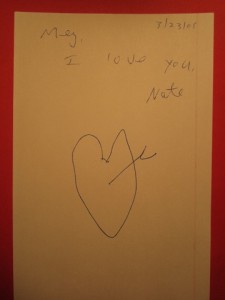 3/23/05
Meg
I love you,
Nate